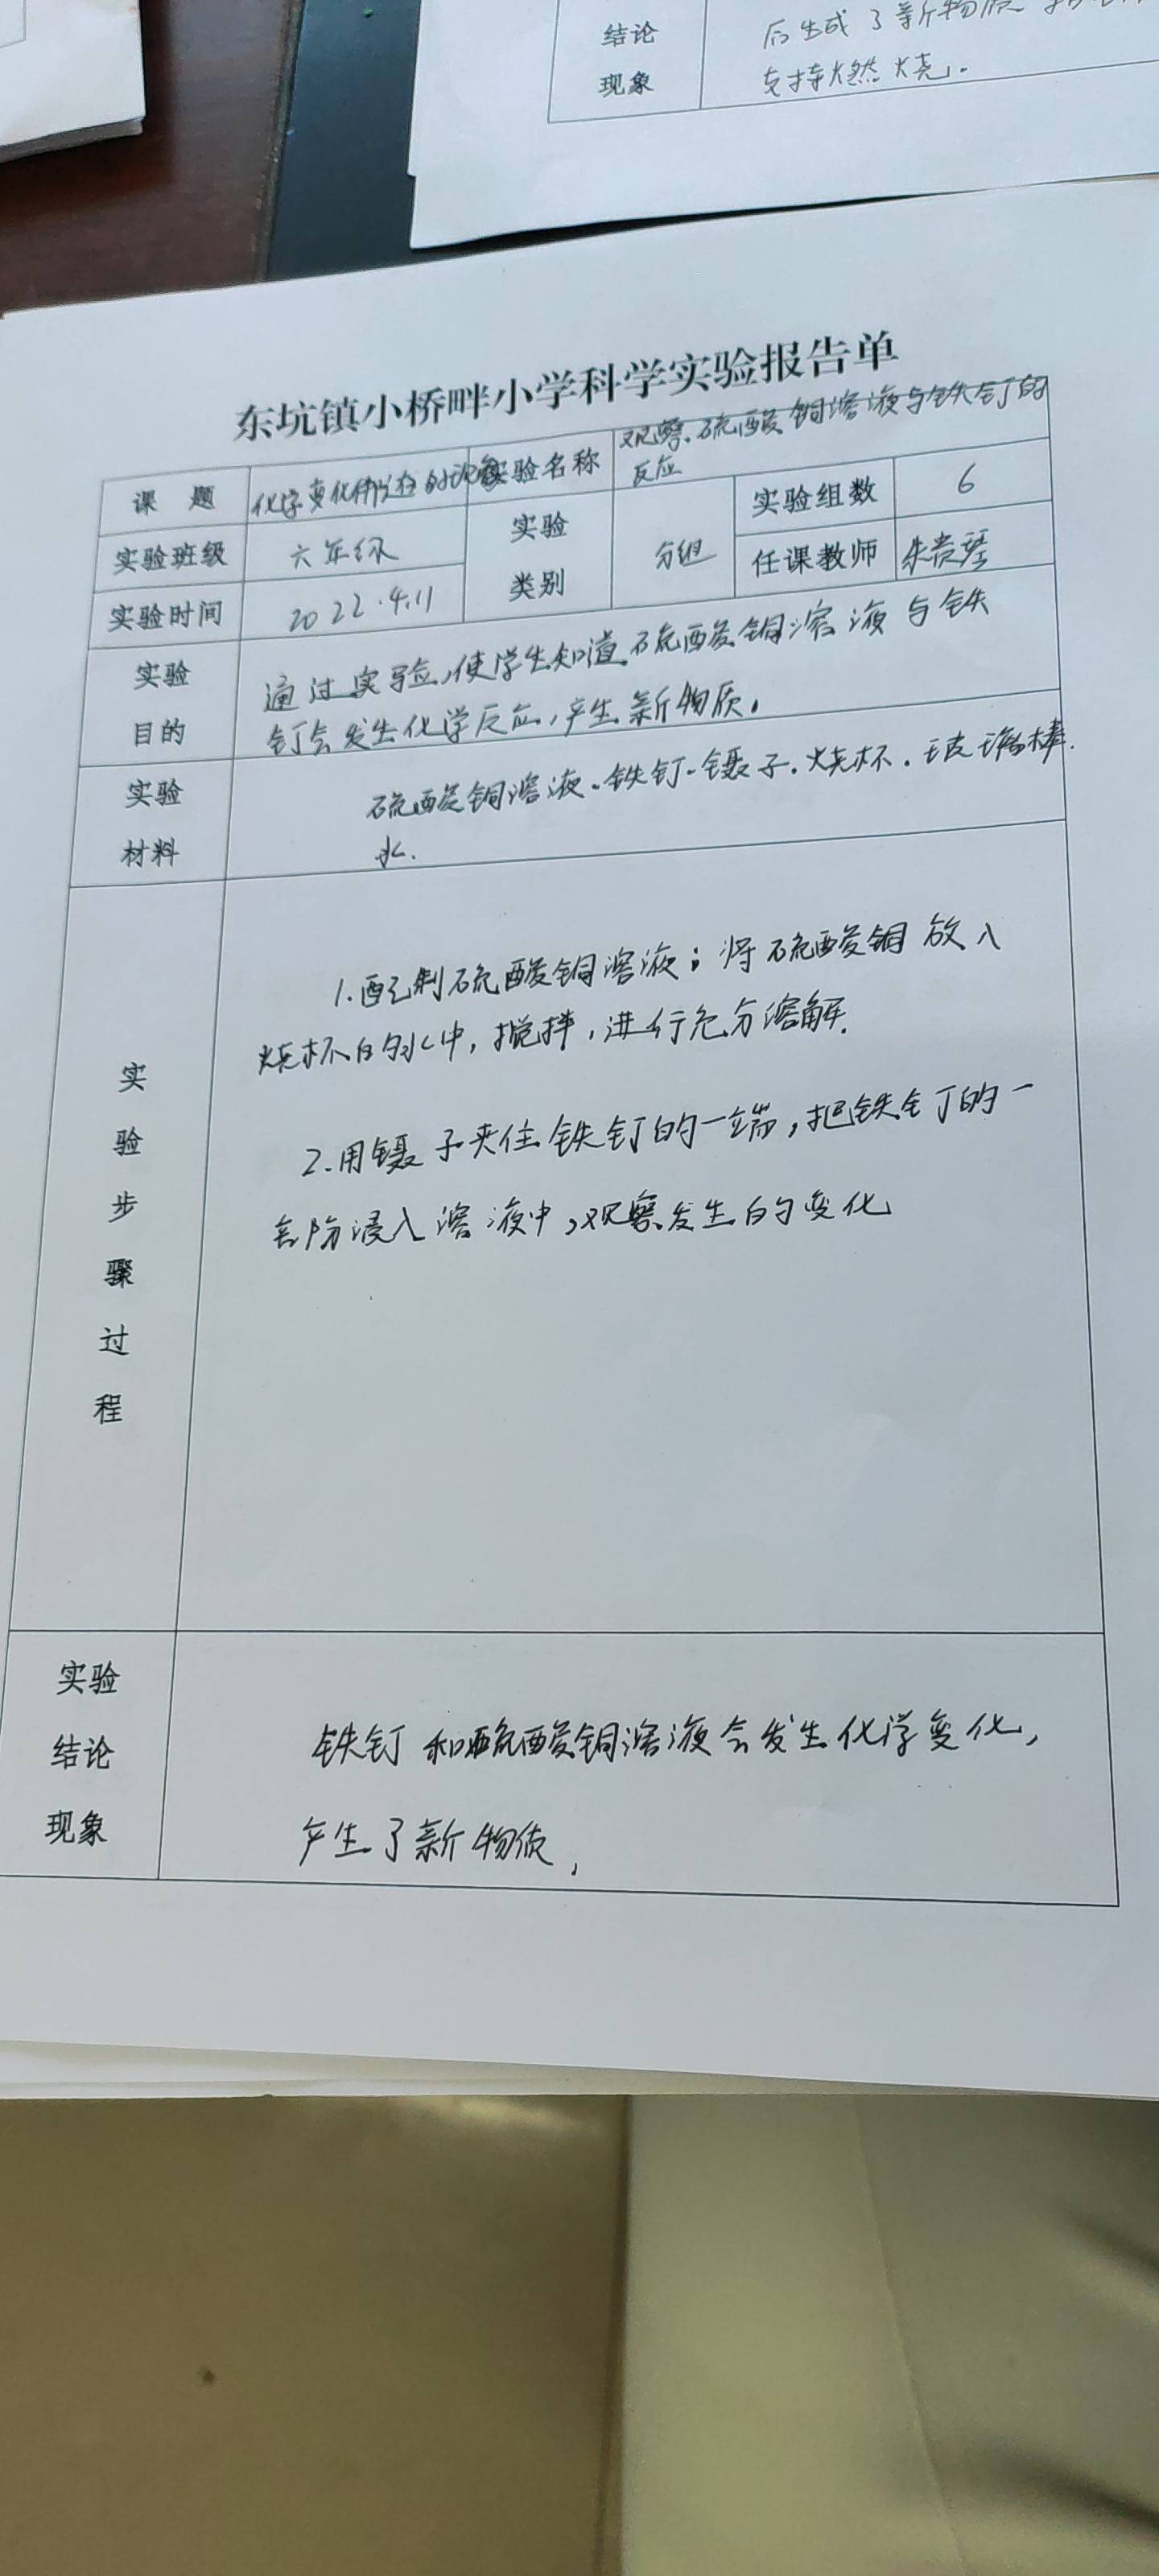 结论
现象
后生成了新物质
支持燃烧.
东坑镇小桥畔小学科学实验报告单
课 题
化学变化伴随的现象
实验名称
观察硫酸铜溶液与铁钉的
反应
实验班级
六年级
实验
类别
分组
实验组数
6
任课教师
朱贵琴
实验时间
2022.4.11
实验
目的
通过实验,使学生知道硫酸铜溶液与铁
钉会发生化学反应,产生新物质。
实验
材料
硫酸铜溶液、铁钉、镊子、烧杯、玻璃棒
水.
实
验
步
骤
过
程
1.配制硫酸铜溶液;将硫酸铜放入
烧杯的水中,搅拌,进行充分溶解.
2.用镊子夹住铁钉的一端,把铁钉的一
部分浸入溶液中,观察发生的变化
实验
结论
现象
铁钉和硫酸铜溶液会发生化学变化,
产生了新物质,